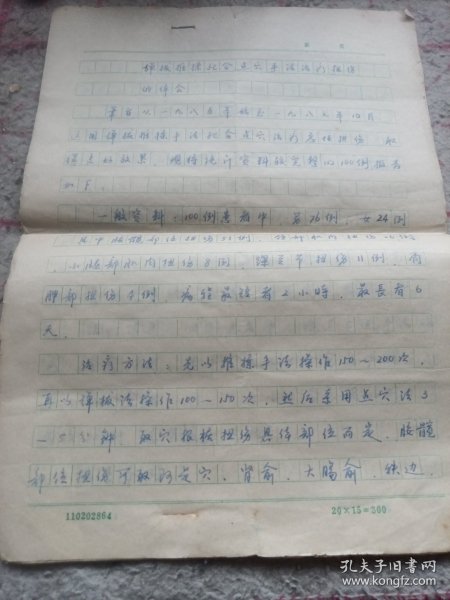 弹拨推揉配合点穴手法治疗扭伤
的体会
笔者从一九八五年 至一九八七年10月
运用弹拨推揉手法配合点穴治疗 扭伤，取
得良好效果，现将统计资料较完整的100例报告
如下。
一般资料：100例患者中，男76例，女24例
其中腰髋部位扭伤
，小腿部肌肉扭伤8例，踝关节扭伤11例，肩
胛部扭伤4例，病程最短者2小时，最长者6
天。
治疗方法：先以推揉手法操作150～200次，
再以弹拨法操作100～150次，然后采用点穴法3
－5分钟 取穴根据扭伤具体部位而定。腰髋
部位扭伤可取阿是穴、肾俞、大肠俞、秩边、
110202864
20×15=300
孔夫子旧书网
www.kongfz.com